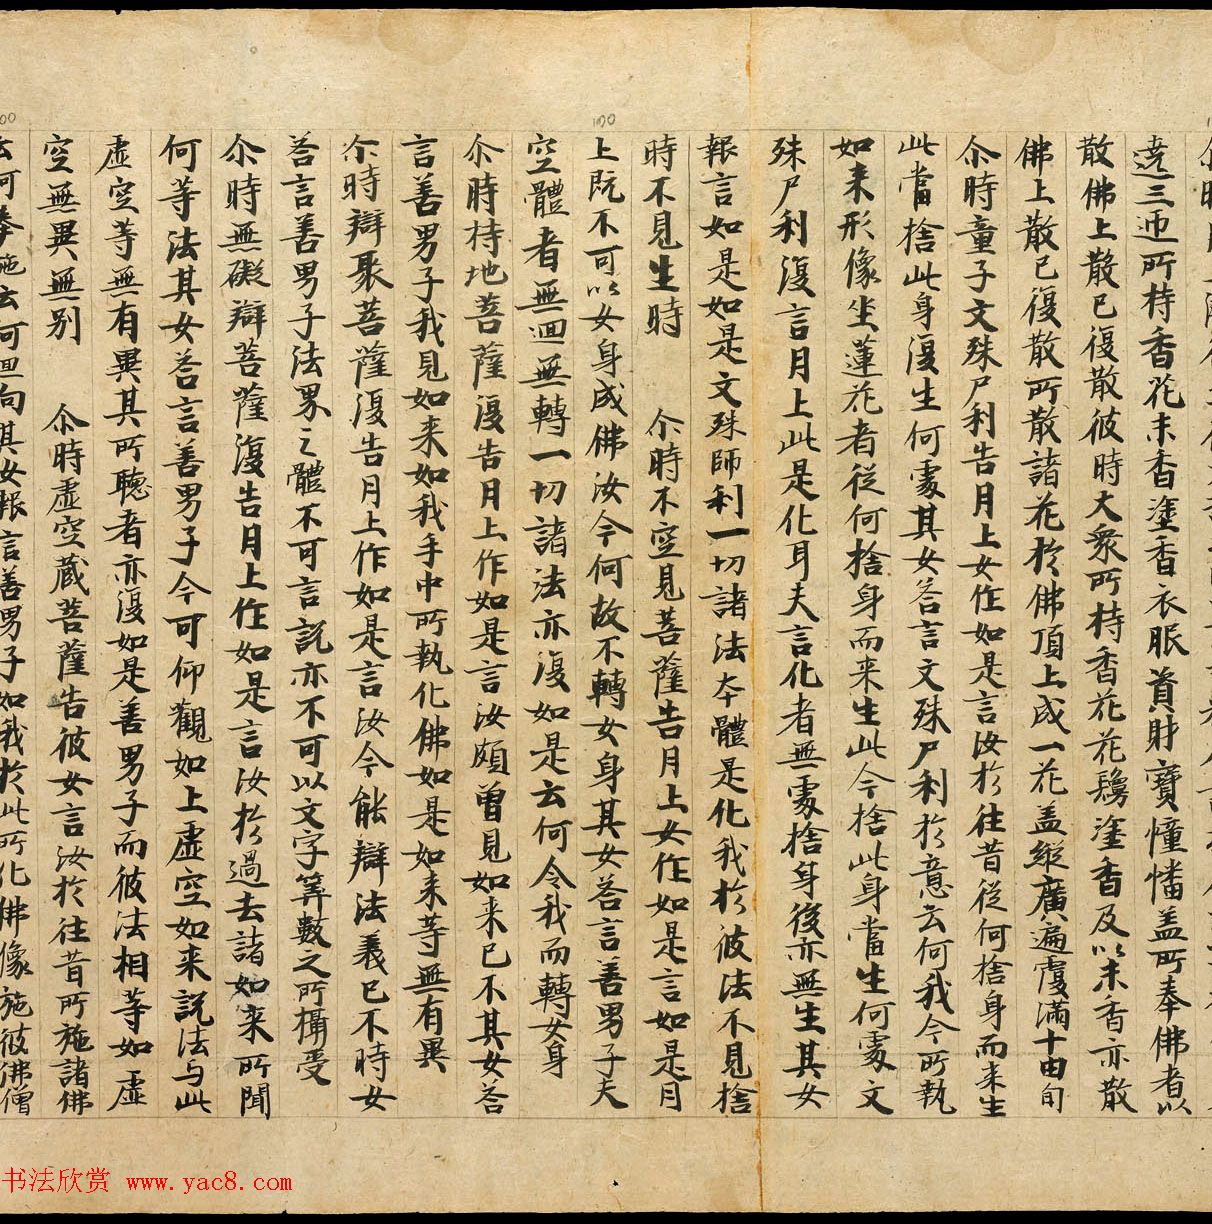 遶三迊所持香花末香塗香衣服資財寶幢幡盖所奉佛者以
散佛上散已復散彼時大衆所持香花花鬘塗香及以末香亦散
佛上散已復散所散諸花於佛頂上成一花盖縱廣遍覆滿十由旬
尒時童子文殊尸利告月上女作如是言汝於往昔從何捨身而来生
此當捨此身復生何處其女荅言文殊尸利於意云何我今所執
如来形像坐蓮花者從何捨身而来生此今捨此身當生何處文
殊尸利復言月上此是化耳夫言化者無處捨身後亦無生其女
報言如是如是文殊師利一切諸法本體是化我於彼法不見捨
時不見生時 尒時不空見菩薩告月上女作如是言如是月
上既不可以女身成佛汝今何故不轉女身其女荅言善男子夫
空體者無迴無轉一切諸法亦復如是云何令我而轉女身
尒時持地菩薩復告月上作如是言汝頗曾見如来已不其女荅
言善男子我見如来如我手中所執化佛如是如来等無有異
尒時辯聚菩薩復告月上作如是言汝今能辯法義已不時女
荅言善男子法界之體不可言說亦不可以文字筭數之所攝受
尒時無礙辯菩薩復告月上作如是言汝於過去諸如来所聞
何等法其女荅言善男子今可仰觀如上虛空如来説法与此
虛空等無有異其所聽者亦復如是善男子而彼法相等如虛
空無異無别 尒時虛空蔵菩薩告彼女言汝於往昔所施諸佛
云何奉施云何迴向其女報言善男子如我於此所化佛像施彼佛僧
100
书法欣赏 www.yac8.com